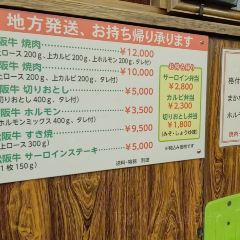 地方発送、お持ち帰り承ります
阪牛 焼肉 ￥12,000
ロース200g、上カルビ200g、上ホルモン200g、タレ付)
阪牛 焼肉 ￥10,000
ロース200g、カルビ200g、ホルモン200g、タレ付)
阪牛 切りおとし ￥5,000
切りおとし400g、タレ付)
阪牛 ホルモン ￥3,500
ホルモンミックス400g、タレ付)
阪牛 すき焼 ￥9,500
上ロース300g)
阪牛 サーロインステーキ ￥5,000
1枚150g)
送料・箱類 別途
お持ち帰り
サーロイン弁当
￥2,800
カルビ弁当
￥2,300
切りおとし弁当
￥1,800
(みそ・しょうゆ味)
※税込み価格です